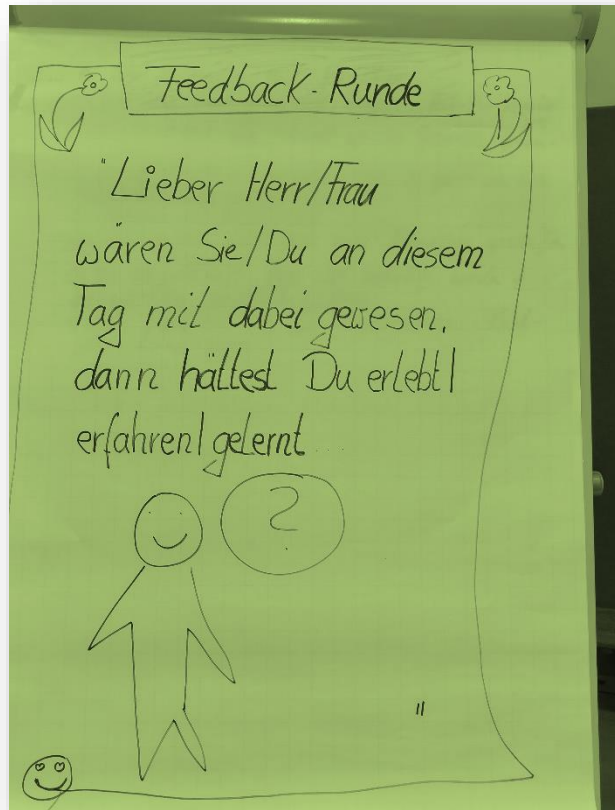 Feedback-Runde
"Lieber Herr/Frau
wären Sie/Du an diesem
Tag mit dabei gewesen,
dann hättest Du erlebt/
erfahren/gelernt....
?
"